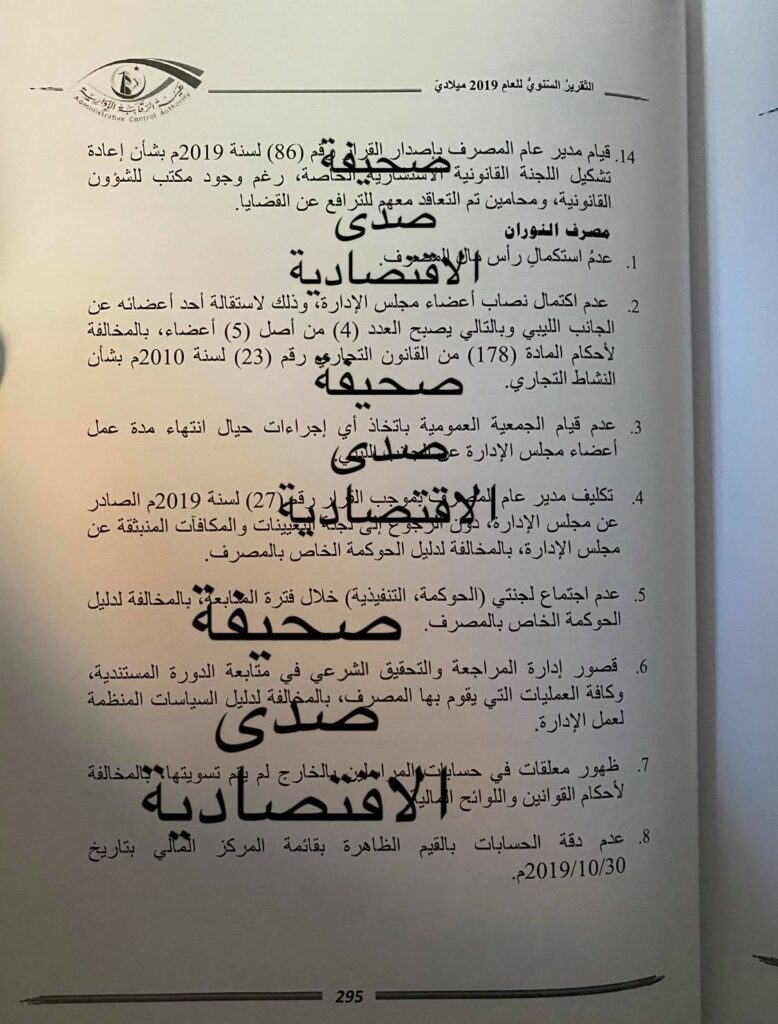 التقرير السنوي للعام 2019 ميلادي
هيئة الرقابة الإدارية
Administrative Control Authority
14. قيام مدير عام المصرف بإصدار القرار رقم (86) لسنة 2019م بشأن إعادة
تشكيل اللجنة القانونية الاستشارية الخاصة، رغم وجود مكتب للشؤون
القانونية، ومحامين تم التعاقد معهم للترافع عن القضايا.
مصرف النوران
1. عدمُ استكمالِ رأس مال المصرف.
2. عدم اكتمال نصاب أعضاء مجلس الإدارة، وذلك لاستقالة أحد أعضائه عن
الجانب الليبي وبالتالي يصبح العدد (4) من أصل (5) أعضاء، بالمخالفة
لأحكام المادة (178) من القانون التجاري رقم (23) لسنة 2010م بشأن
النشاط التجاري.
3. عدم قيام الجمعية العمومية باتخاذ أي إجراءات حيال انتهاء مدة عمل
أعضاء مجلس الإدارة عن الجانب الليبي.
4. تكليف مدير عام للمصرف بموجب القرار رقم (27) لسنة 2019م الصادر
عن مجلس الإدارة، دون الرجوع إلى لجنة التعيينات والمكافآت المنبثقة عن
مجلس الإدارة، بالمخالفة لدليل الحوكمة الخاص بالمصرف.
5. عدم اجتماع لجنتي (الحوكمة، التنفيذية) خلال فترة المتابعة، بالمخالفة لدليل
الحوكمة الخاص بالمصرف.
6. قصور إدارة المراجعة والتحقيق الشرعي في متابعة الدورة المستندية،
وكافة العمليات التي يقوم بها المصرف، بالمخالفة لدليل السياسات المنظمة
لعمل الإدارة.
7. ظهور معلقات في حسابات المراسلين بالخارج لم يتم تسويتها، بالمخالفة
لأحكام القوانين واللوائح المالية.
8. عدم دقة الحسابات بالقيم الظاهرة بقائمة المركز المالي بتاريخ
2019/10/30م.
295
صحيفة
صدى
الاقتصادية
صحيفة
صدى
الاقتصادية
صحيفة
صدى
الاقتصادية